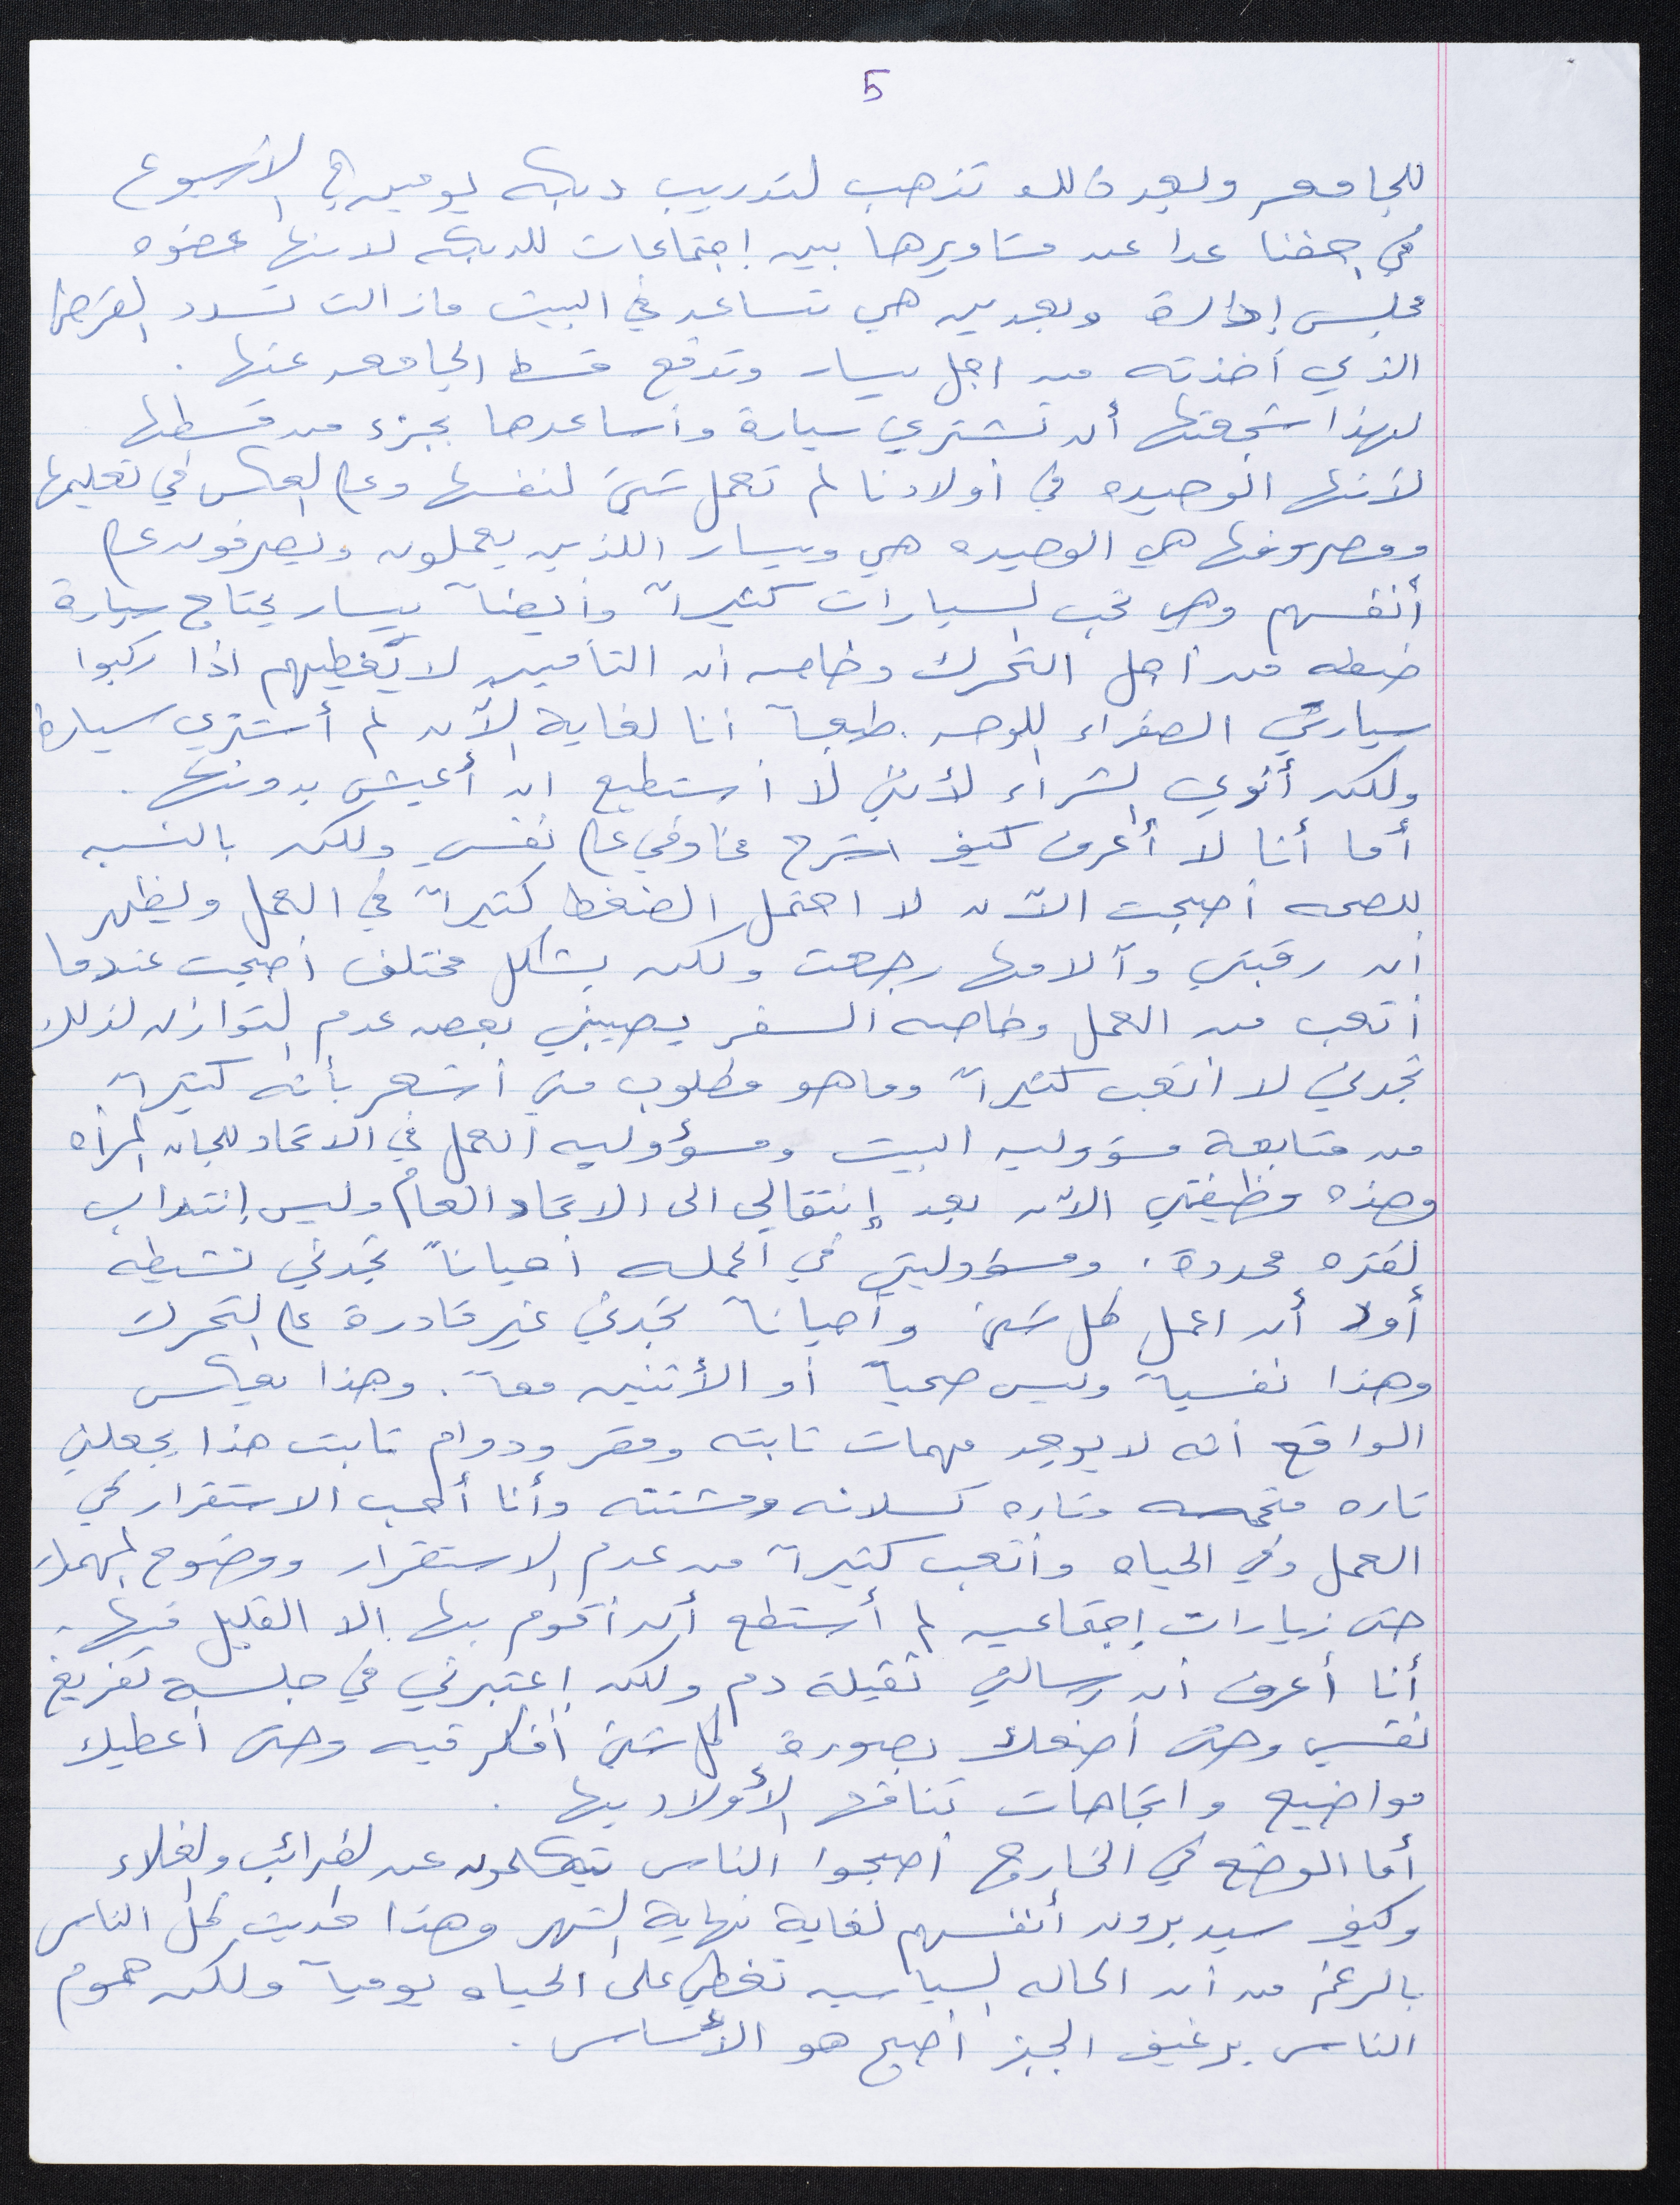 5
للجامعه وبعد ذلك تذهب لتدريب دبكه يومين في الاسبوع
في جفنا عدا عن مشاويرها بين اجتماعات للدبكه لانها عضوه
مجلس إدارة وبعدين هي تساعد في البيت مازالت تسدد القرض
الذي أخذته من اجل يسار وتدفع قسط الجامعه عنها .
لهذا شجعتها أن تشتري سيارة وأساعدها بجزء من قسطها
لأنها الوحيده في أولادنا لم تعمل شيئ لنفسها وعلى العكس في تعليمها
ومصروفها هي الوحيده هي ويسار اللذين يعملون ويصرفون على
أنفسهم وهي تحب السيارات كثيراً وأيضاً يسار يحتاج سيارة
ضفه من أجل التحرك وخاصه أن التأمين لا يُغطيهم اذا ركبوا
سيارتي الصفراء اللوحه . طبعاً أنا لغاية الآن لم أشتري سيارة
ولكن أنوي الشراء لأنني لا أستطيع ان أعيش بدونها .
أما أنا لا أعرف كيف اشرح مخاوفي على نفسي ولكن بالنسبه
للصحه أصبحت الآن لا احتمل الضغط كثيراً في العمل ويظهر
أن رقبتي وآلامها رجعت ولكن بشكل مختلف أصبحت عندما
أتعب من العمل وخاصه السفر يصيبني بعض عدم التوازن لذلك
تجدني لا أتعب كثيراً وما هو مطلوب مني أشعر بأنه كثيراً
من متابعة مسؤوليه البيت ومسؤوليه العمل في الاتحاد للجان المرأه
وهذه وظيفتي الآن بعد إنتقالي الى الاتحاد العام وليس إنتداب
لفتره محددة . ومسؤوليتي في الحمله أحياناً تجدني نشيطه
أود أن اعمل كل شيئ وأحياناً تجدني غير قادرة على التحرك
وهذا نفسياً وليس صحياً أو الأثنين معاً . وهذا يعكس
الواقع أنه لا يوجد مهمات ثابته ومقر ودوام ثابت هذا يجعلني
تاره متحمسه وتاره كسلانه ومشتته وأنا أحب الاستقرار في
العمل وفي الحياه وأتعب كثيراً من عدم الاستقرار ووضوح المهمات
حتى زيارات إجتماعيه لم أستطع أن أقوم بها إلا القليل فيها .
أنا أعرف أن رسالتي ثقيلة دم ولكن إعتبرني في جلسة تفريغ
نفسي وحتى أضعك بصورة كل شيئ أفكر فيه وحتى أعطيك
مواضيع واتجاهات تناقش الأولاد بها .
أما الوضع في الخارج أصبحوا الناس يتكلمون عن الضرائب والغلاء
وكيف سيدبرون أنفسهم لغاية نهاية الشهر وهذا حديث كل الناس
بالرغم من أن الحاله السياسيه تغطي على الحياه يومياً ولكن هموم
الناس برغيف الخبز أصبح هو الأساس .